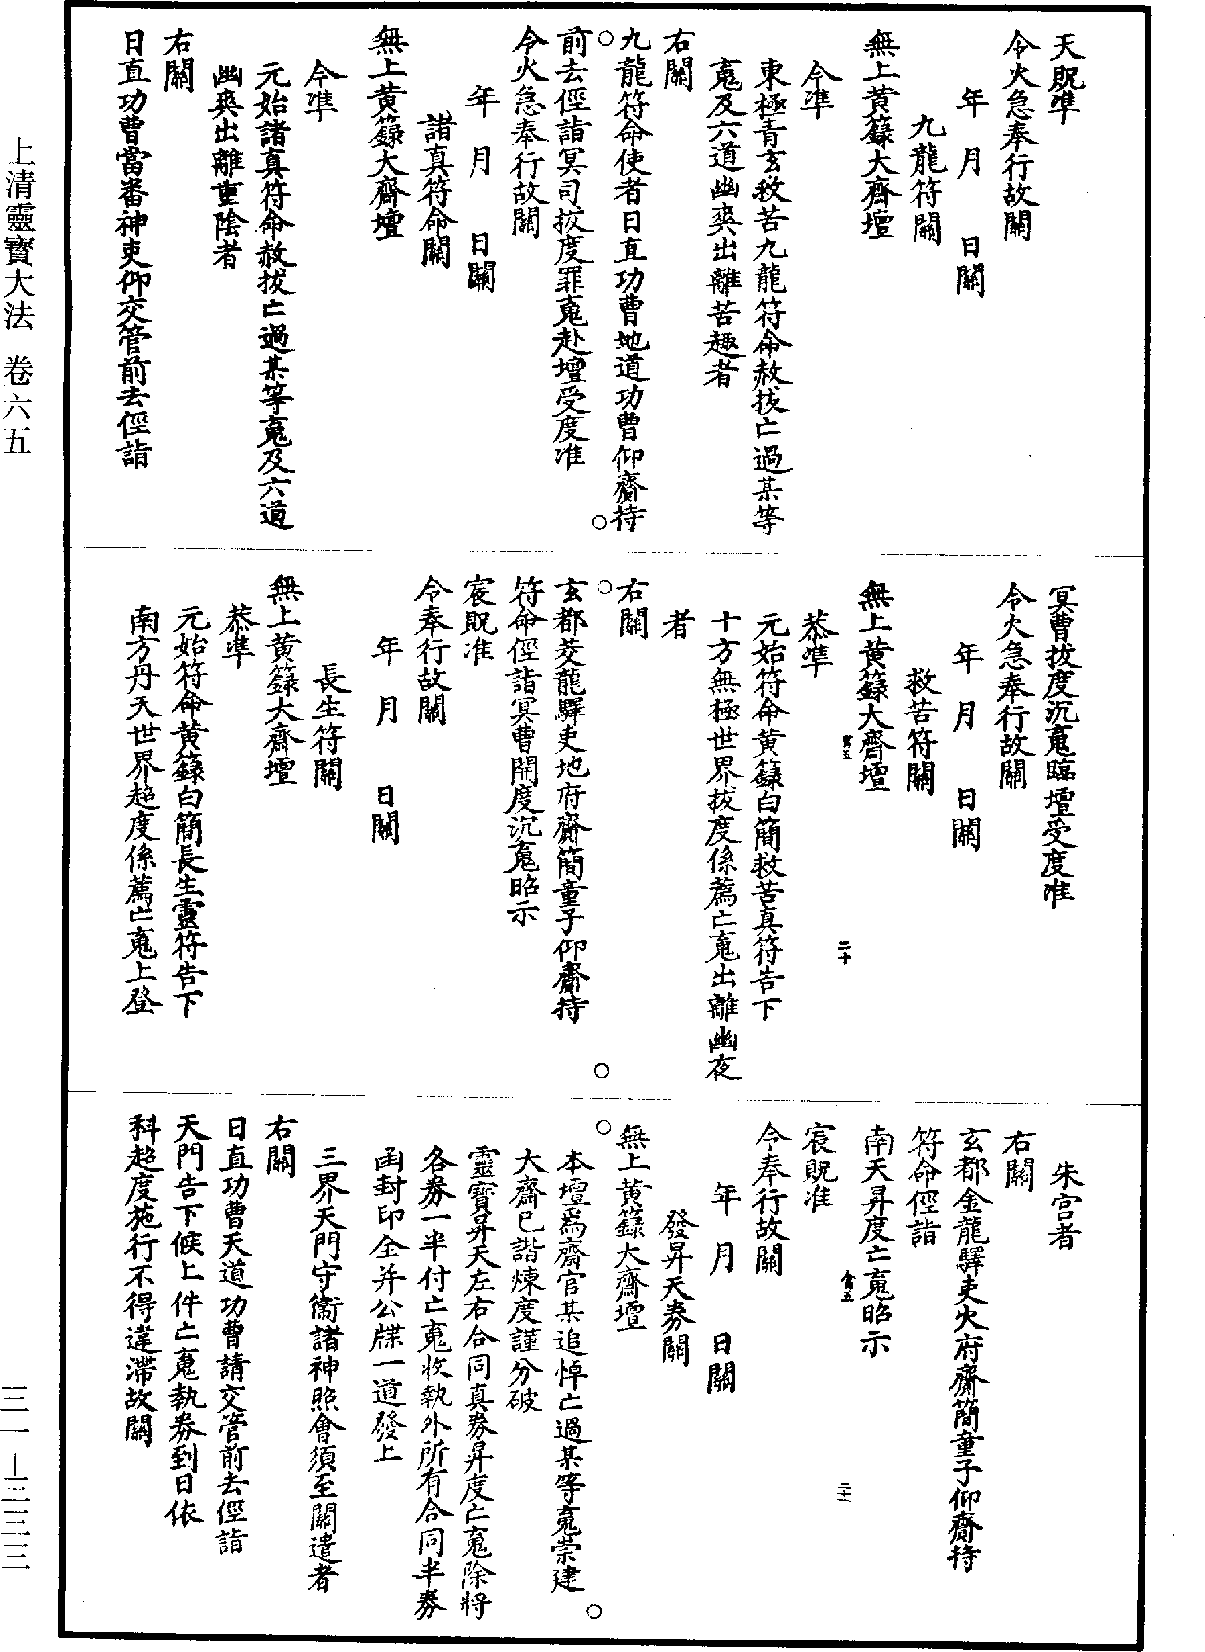 天貺準
令火急奉行故關
年　月　日關
九龍符關
無上黃籙大齋壇
今準
東極青玄救苦九龍符命赦拔亡過某等
䰟及六道幽爽出離苦趣者
右關
九龍符命使者日直功曹地道功曹仰齎持
前去徑詣冥司拔度罪䰟赴壇受度准
令火急奉行故關
年　月　日關
諸真符命關
無上黃籙大齋壇
今準
元始諸真符命赦拔亡過某等䰟及六道
幽爽出離重陰者
右關
日直功曹當番神吏仰交管前去徑詣
冥曹拔度沉䰟臨壇受度准
令火急奉行故關
年　月　日關
救苦符關
無上黃籙大齋壇
恭準
元始符命黃籙白簡救苦真符告下
十方無極世界拔度係薦亡䰟出離幽夜
者
右關
玄都茭龍驛吏地府齋簡童子仰齎持
符命徑詣冥曹開度沉䰟昭示
宸貺准
令奉行故關
年　月　日關
長生符關
無上黃籙大齋壇
恭準
元始符命黃籙白簡長生靈符告下
南方丹天世界超度係薦亡䰟上登
朱宮者
右關
玄都金龍驛吏火府齋簡童子仰齎持
符命徑詣
南天昇度亡䰟昭示
宸貺准
令奉行故關
年　月　日關
發昇天券關
無上黃籙大齋壇
本壇爲齋官某追悼亡過某等䰟崇建
大齋已諧煉度謹分破
靈寶昇天左右合同真券昇度亡䰟除將
各券一半付亡䰟收執外所有合同半券
函封印全并公牒一道發上
三界天門守衞諸神照會須至關遣者
右關
日直功曹天道功曹請交管前去徑詣
天門告下候上件亡䰟執券到日依
科超度施行不得違滯故關
二十
二十一
上清靈寶大法　卷六五
三一－三三三